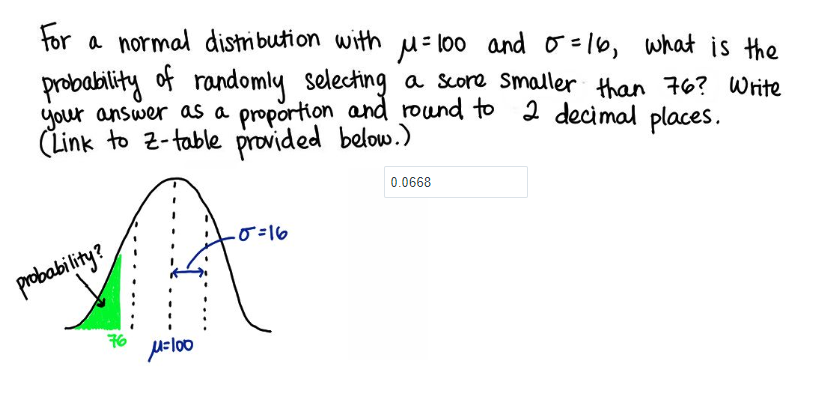 For a normal distribution with μ=100 and σ=16, what is the
probability of randomly selecting a score smaller than 76? Write
your answer as a proportion and round to 2 decimal places.
(Link to Z-table provided below.)
0.0668
σ=16
probability?
76
μ=100